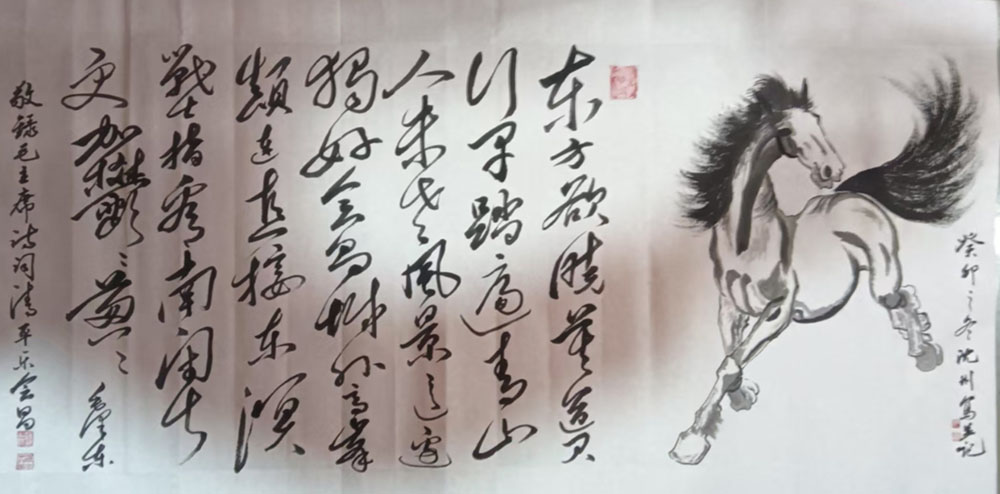 东方欲晓莫道君
行早踏遍青山
人未老风景这边
独好会昌城外高峰
颠连直接东溟
戰士指看南粤
更加鬱々葱々
毛泽东
敬録毛主席诗词清平乐会昌
癸卯之冬沈州